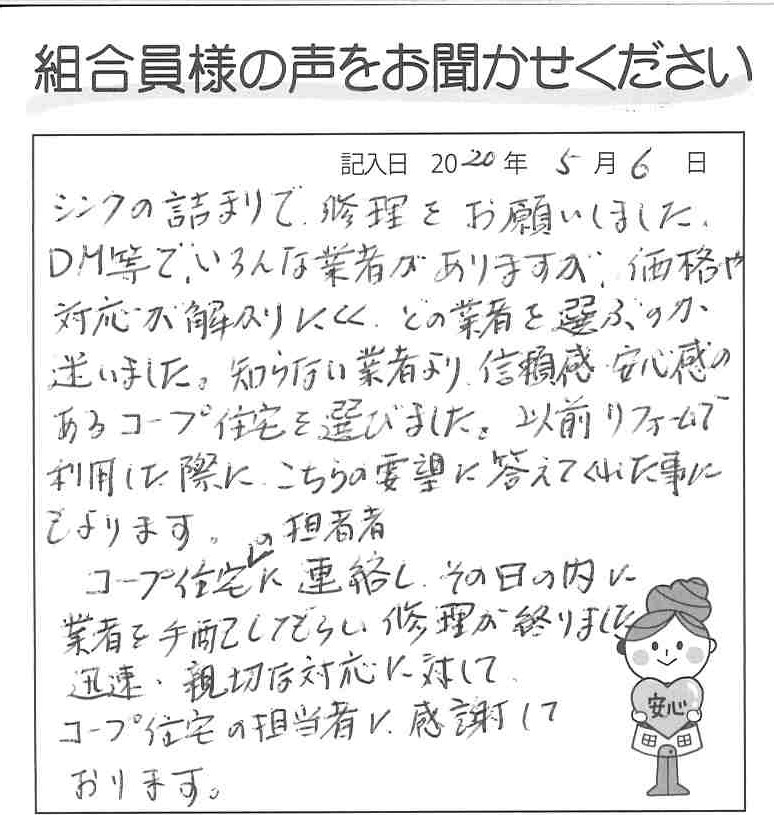 組合員様の声をお聞かせください
記入日 2020年 5月6日
シンクの詰まりで、修理をお願いしました、
DM等で、いろんな業者がありますが、価格や
対応が解りにくく、どの業者を選ぶのか、
迷いました。知らない業者より、信頼感・安心感の
あるコープ住宅を選びました。以前リフォームで
利用した際に、こちらの要望に答えてくれた事に
もよります。
の担当者
コープ住宅に連絡し、その日の内に
業者を手配してもらい、修理が終りました
迅速・親切な対応に対して、
コープ住宅の担当者に、感謝して
おります。
安心